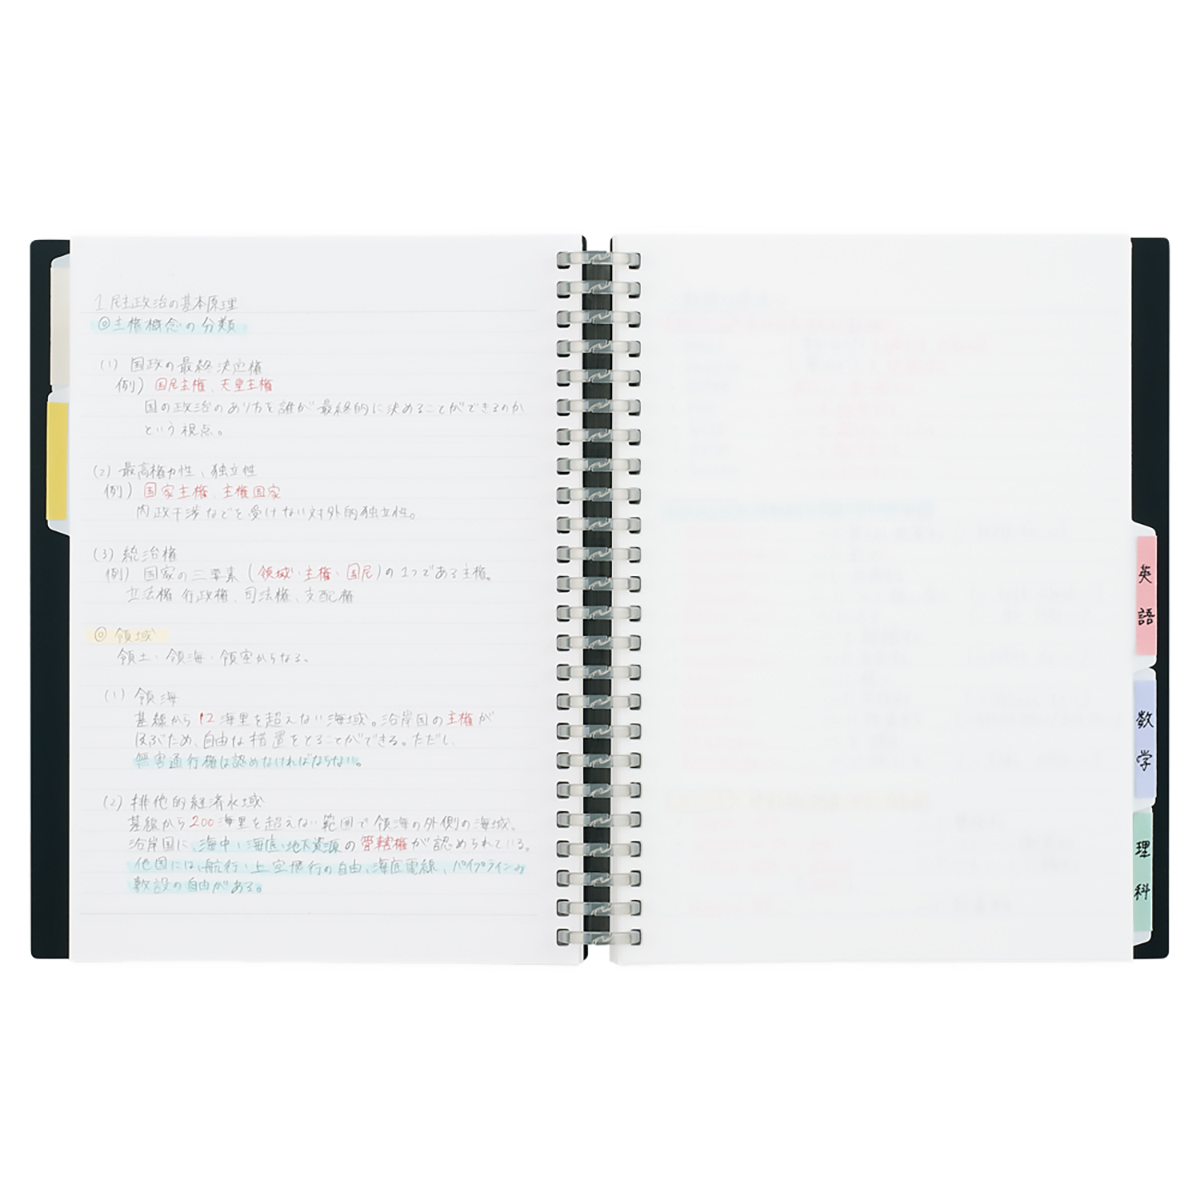 1 民主政治の基本原理
◎主権概念の分類
(1) 国政の最終決定権
例) 国民主権、天皇主権
国の政治のあり方を誰が最終的に決めることができるのか
という視点。
(2) 最高権力性、独立性
例) 国家主権、主権国家
内政干渉などを受けない対外的独立性。
(3) 統治権
例) 国家の三要素 (領域・主権・国民)の1つである主権。
立法権、行政権、司法権、支配権
◎ 領域
領土・領海・領空からなる。
(1) 領海
基線から12海里を超えない海域。沿岸国の主権が
及ぶため、自由な措置をとることができる。ただし、
無害通行権は認めなければならない。
(2) 排他的経済水域
基線から200海里を超えない範囲で領海の外側の海域。
沿岸国に、海中・海底・地下資源の管轄権が認められている。
他国には、航行・上空飛行の自由、海底電線、パイプラインの
敷設の自由がある。
英語
数学
理科